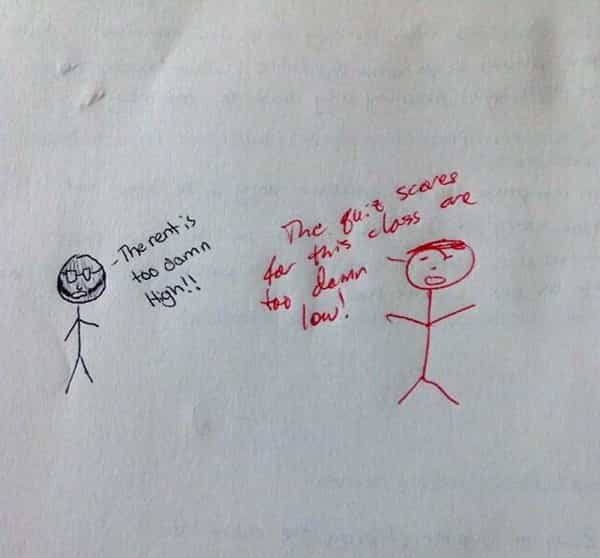 - The rent is
too damn
High!!
The quiz scores
for this class are
too damn
low!